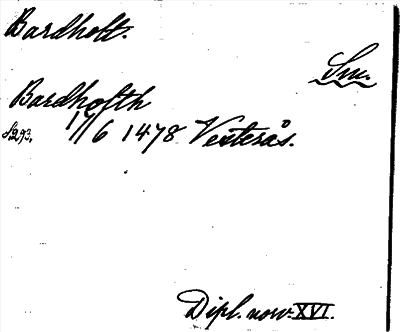 Bardholt.
Sm.
Bardholth
S293. 17/6 1478 Vesterås.
Dipl. norv. XVI.